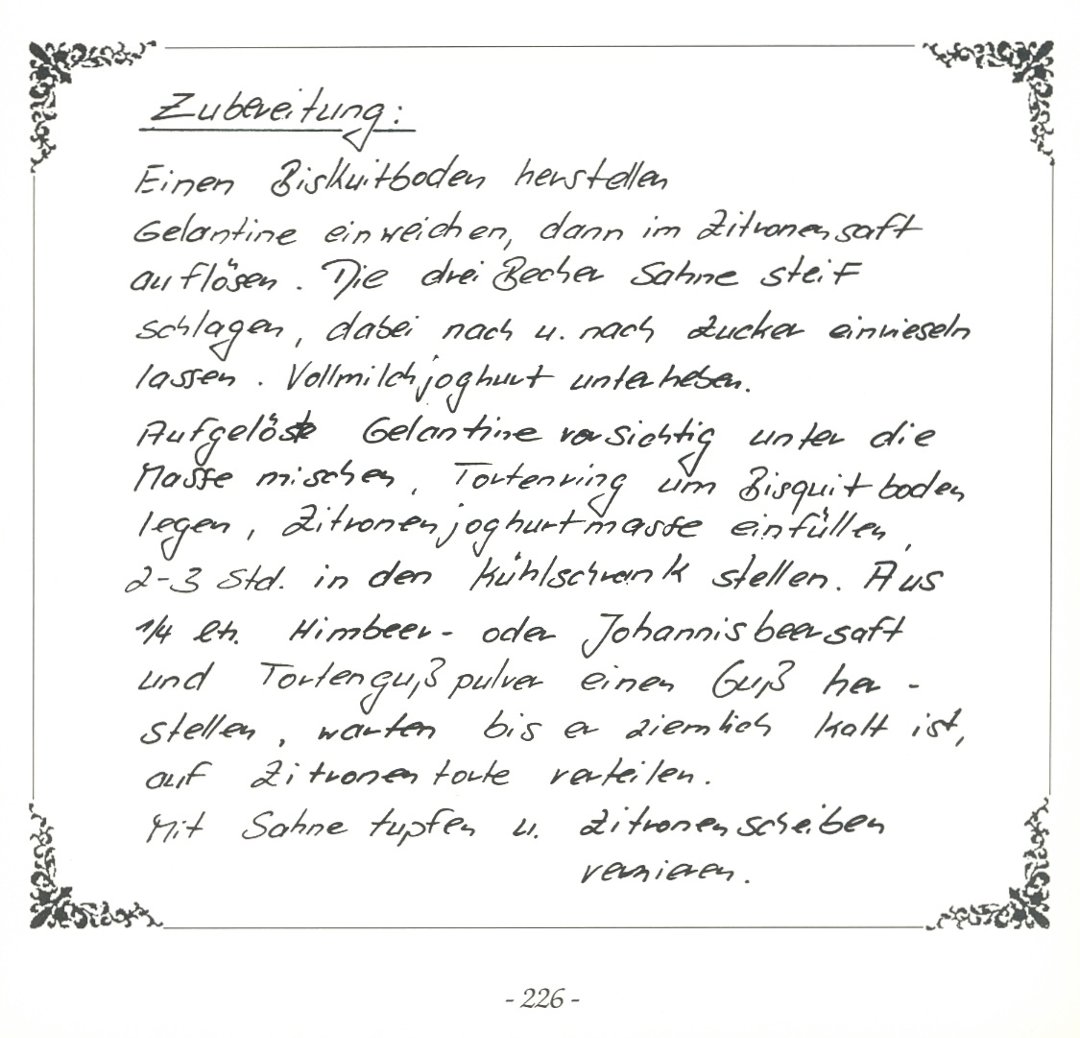 Zubereitung:
Einen Biskuitboden herstellen
Gelantine einweichen, dann im Zitronensaft
auflösen. Die drei Becher Sahne steif
schlagen, dabei nach u. nach Zucker einrieseln
lassen. Vollmilchjoghurt unterheben.
Aufgelöste Gelantine vorsichtig unter die
Masse mischen, Tortenring um Bisquitboden
legen, Zitronenjoghurtmasse einfüllen,
2-3 Std. in den Kühlschrank stellen. Aus
1/4 ltr. Himbeer- oder Johannisbeersaft
und Tortengußpulver einen Guß her-
stellen, warten bis er ziemlich kalt ist,
auf Zitronentorte verteilen.
Mit Sahne tupfen u. Zitronenscheiben
verzieren.
- 226 -